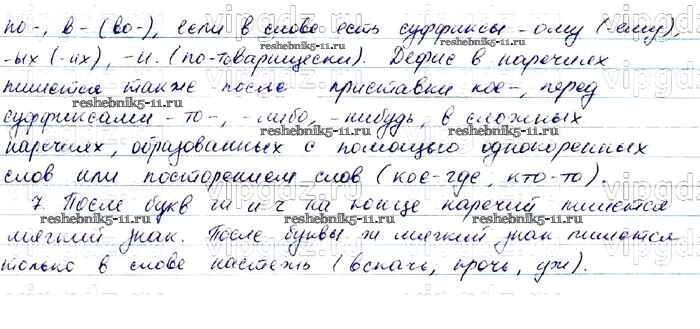 по-, в- (во-), если в слове есть суффиксы -ому (-ему),
-ых (-их), -и. (по-товарищески). Дефис в наречиях
пишется также после приставки кое-, перед
суффиксами -то-, -либо, -нибудь, в сложных
наречиях, образованных с помощью однокоренных
слов или повторением слов (кое-где, кто-то).
7. После букв ш и ч на конце наречий пишется
мягкий знак. После буквы ж мягкий знак пишется
только в слове настежь (вскачь, прочь, уж).
reshebnik5-11.ru
reshebnik5-11.ru
reshebnik5-11.ru
reshebnik5-11.ru
reshebnik5-11.ru